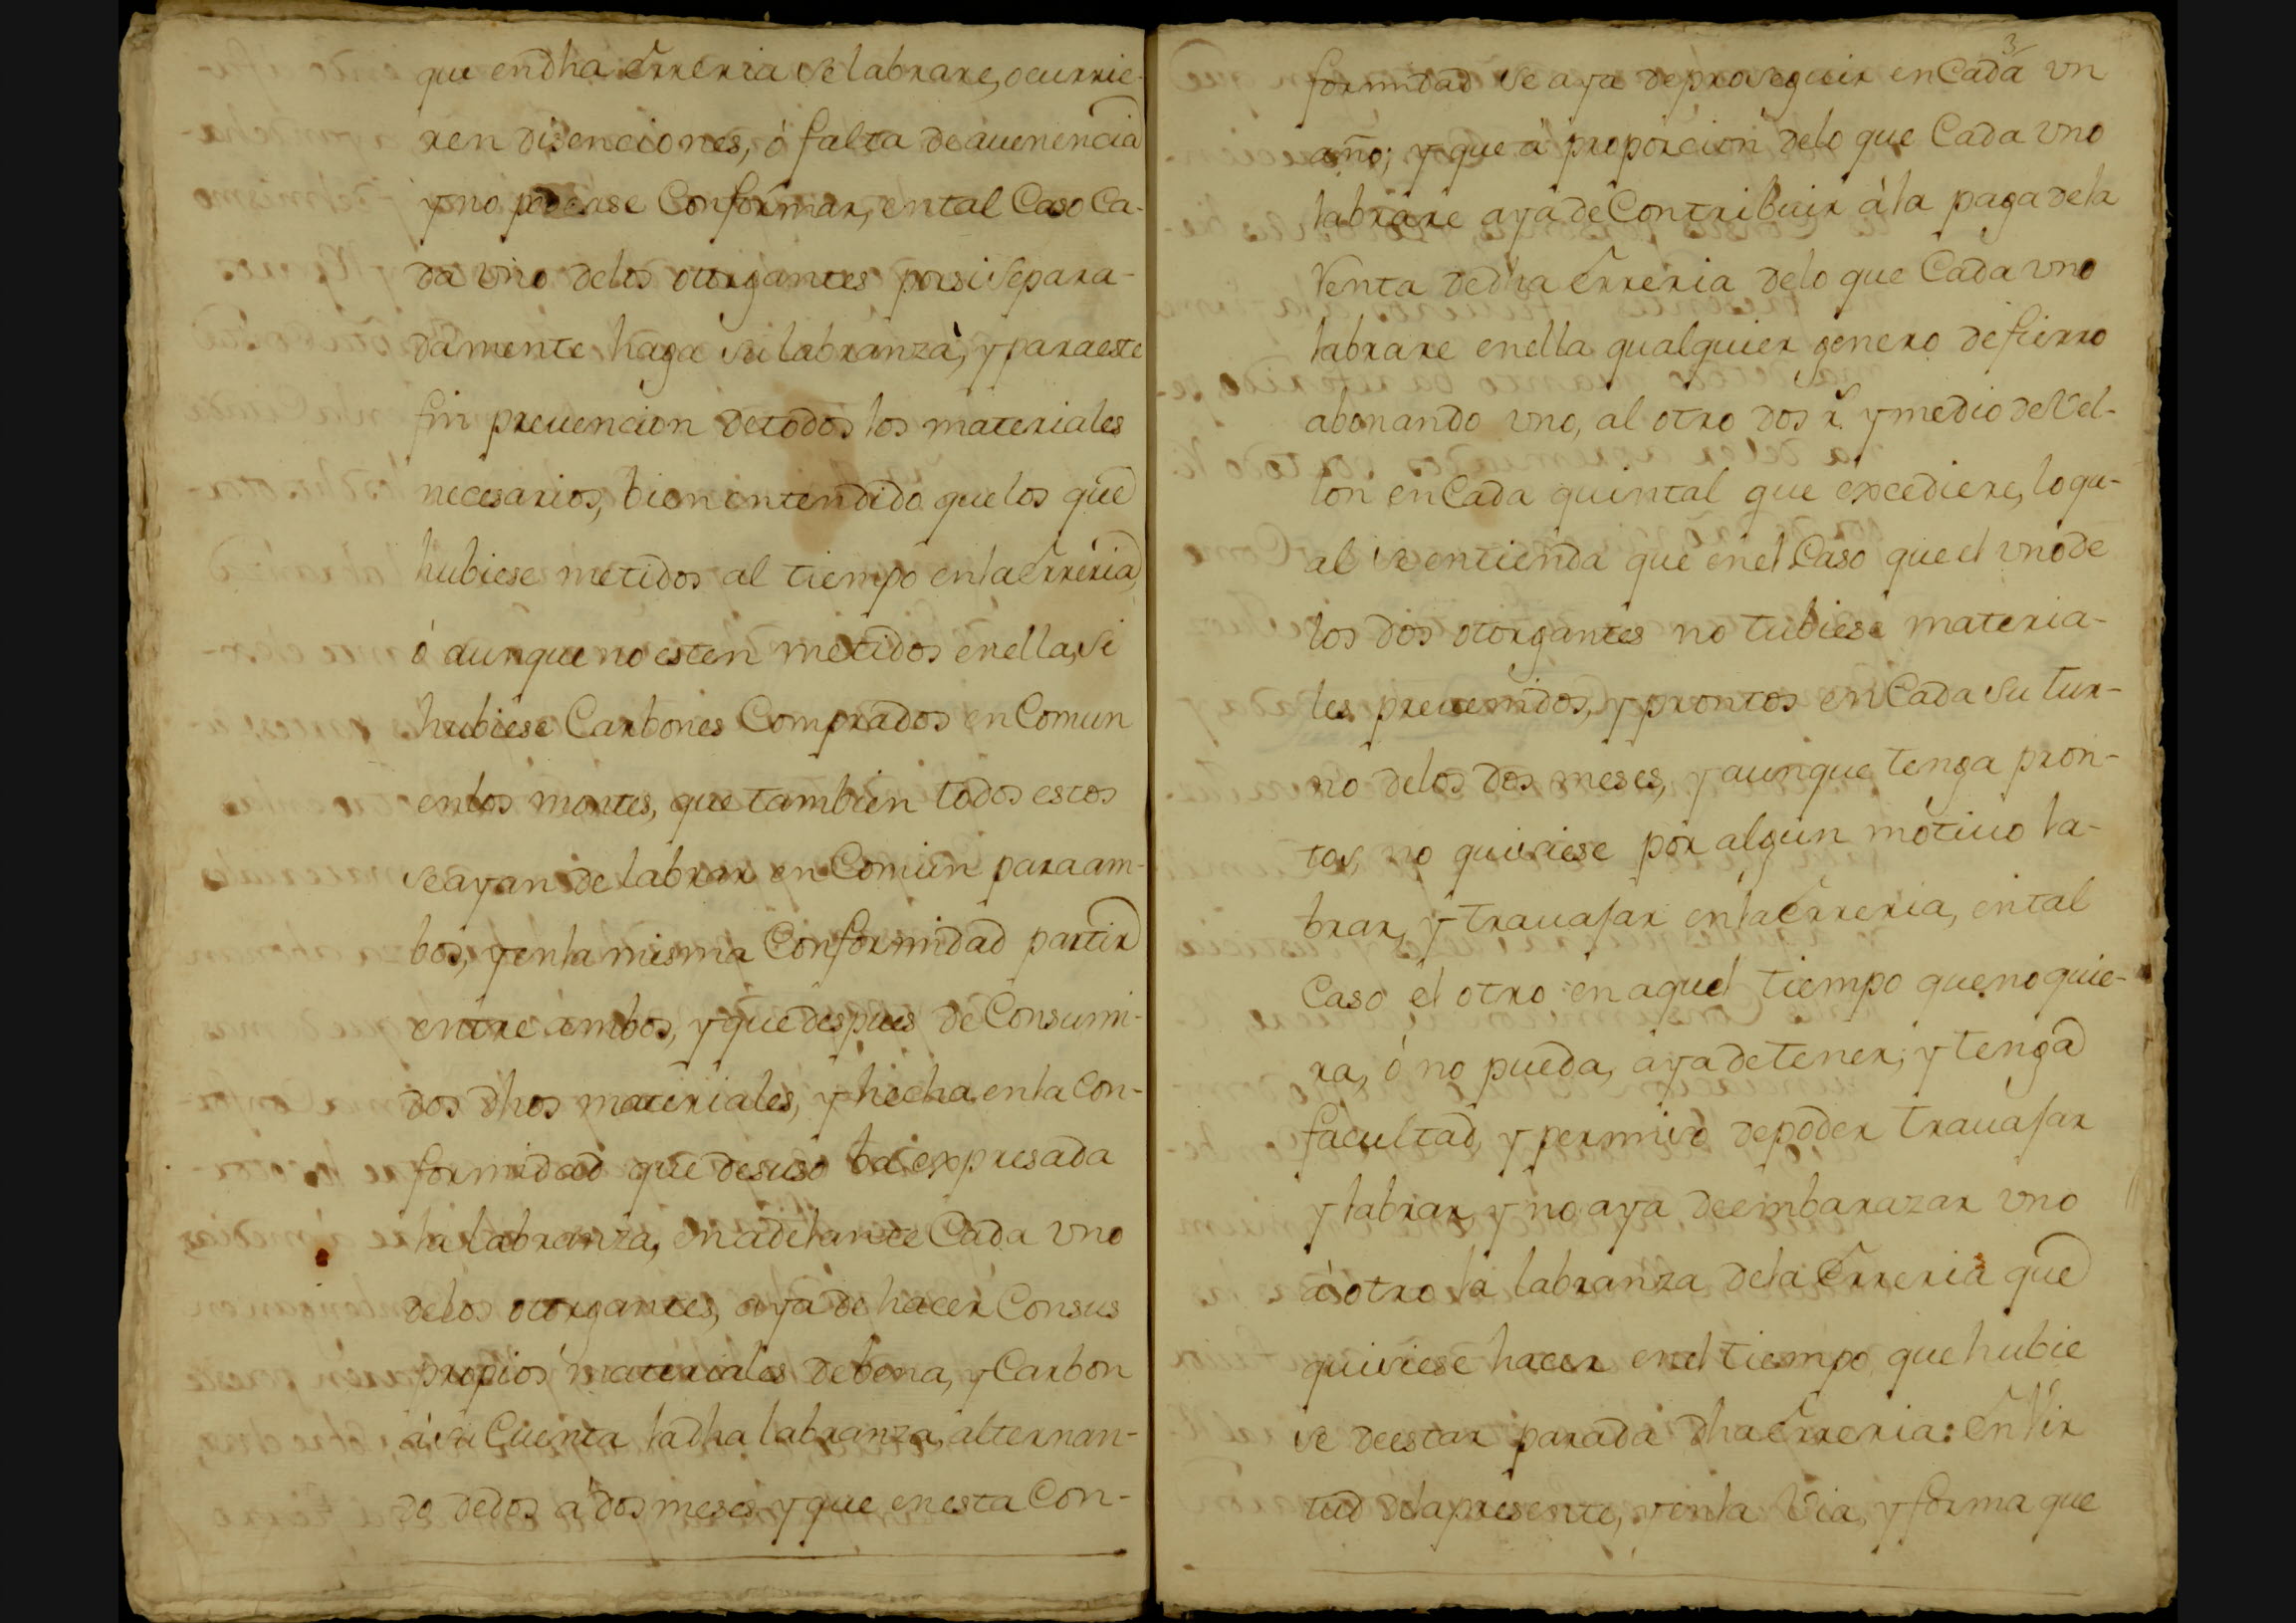 que en dha erreria se labrare, ocurrie-
ren disenciones, ó falta de auenencia
y no poderse Conformar, en tal Caso Ca-
da vno de los otorgantes por si separa-
damente haga su labranza, y para este
fin preuencion de todos los materiales
necesarios, bien entendido que los que
hubiese metidos al tiempo en la erreria,
ó aunque no esten metidos en ella, si
hubiese Carbones Comprados en Comun
en los montes, que tambien todos estos
se ayan de labrar en Comun para am-
bos, y en la misma Conformidad partir
entre ambos, y que despues de Consumi-
dos dhos materiales, y hecha en la Con-
formidad que desuso ba expresada
la labranza, en adelante Cada vno
de los otorgantes, aya de hacer Con sus
propios materiales de bena, y Carbon
á su Cuenta la dha labranza, alternan-
do de dos á dos meses, y que en esta Con-
3
formidad se aya de proseguir en Cada vn
año; y que á proporcion de lo que Cada vno
labrare aya de Contribuir á la paga de la
Renta de dha erreria de lo que Cada vno
labrare en ella qualquier genero de fierro
abonando vno, al otro dos rs. y medio de Vel-
lon en Cada quintal que excediere, lo qu-
al se entienda que en el Caso que el vno de
los dos otorgantes no tubiese materia-
les preuenidos, y prontos en Cada su tur-
no de los dos meses, y aunque tenga pron-
tos, no quisiese por algun motiuo la-
brar, y trauajar en la erreria, en tal
Caso el otro en aquel tiempo que no quie-
ra, ó no pueda, aya de tener, y tenga
facultad, y permiso de poder trauajar
y labrar, y no aya de embarazar vno
á otro la labranza de la Erreria que
quisiese hacer en el tiempo, que hubie
se de estar parada dha erreria: En Vir
tud de la presente, y en la Via, y forma que